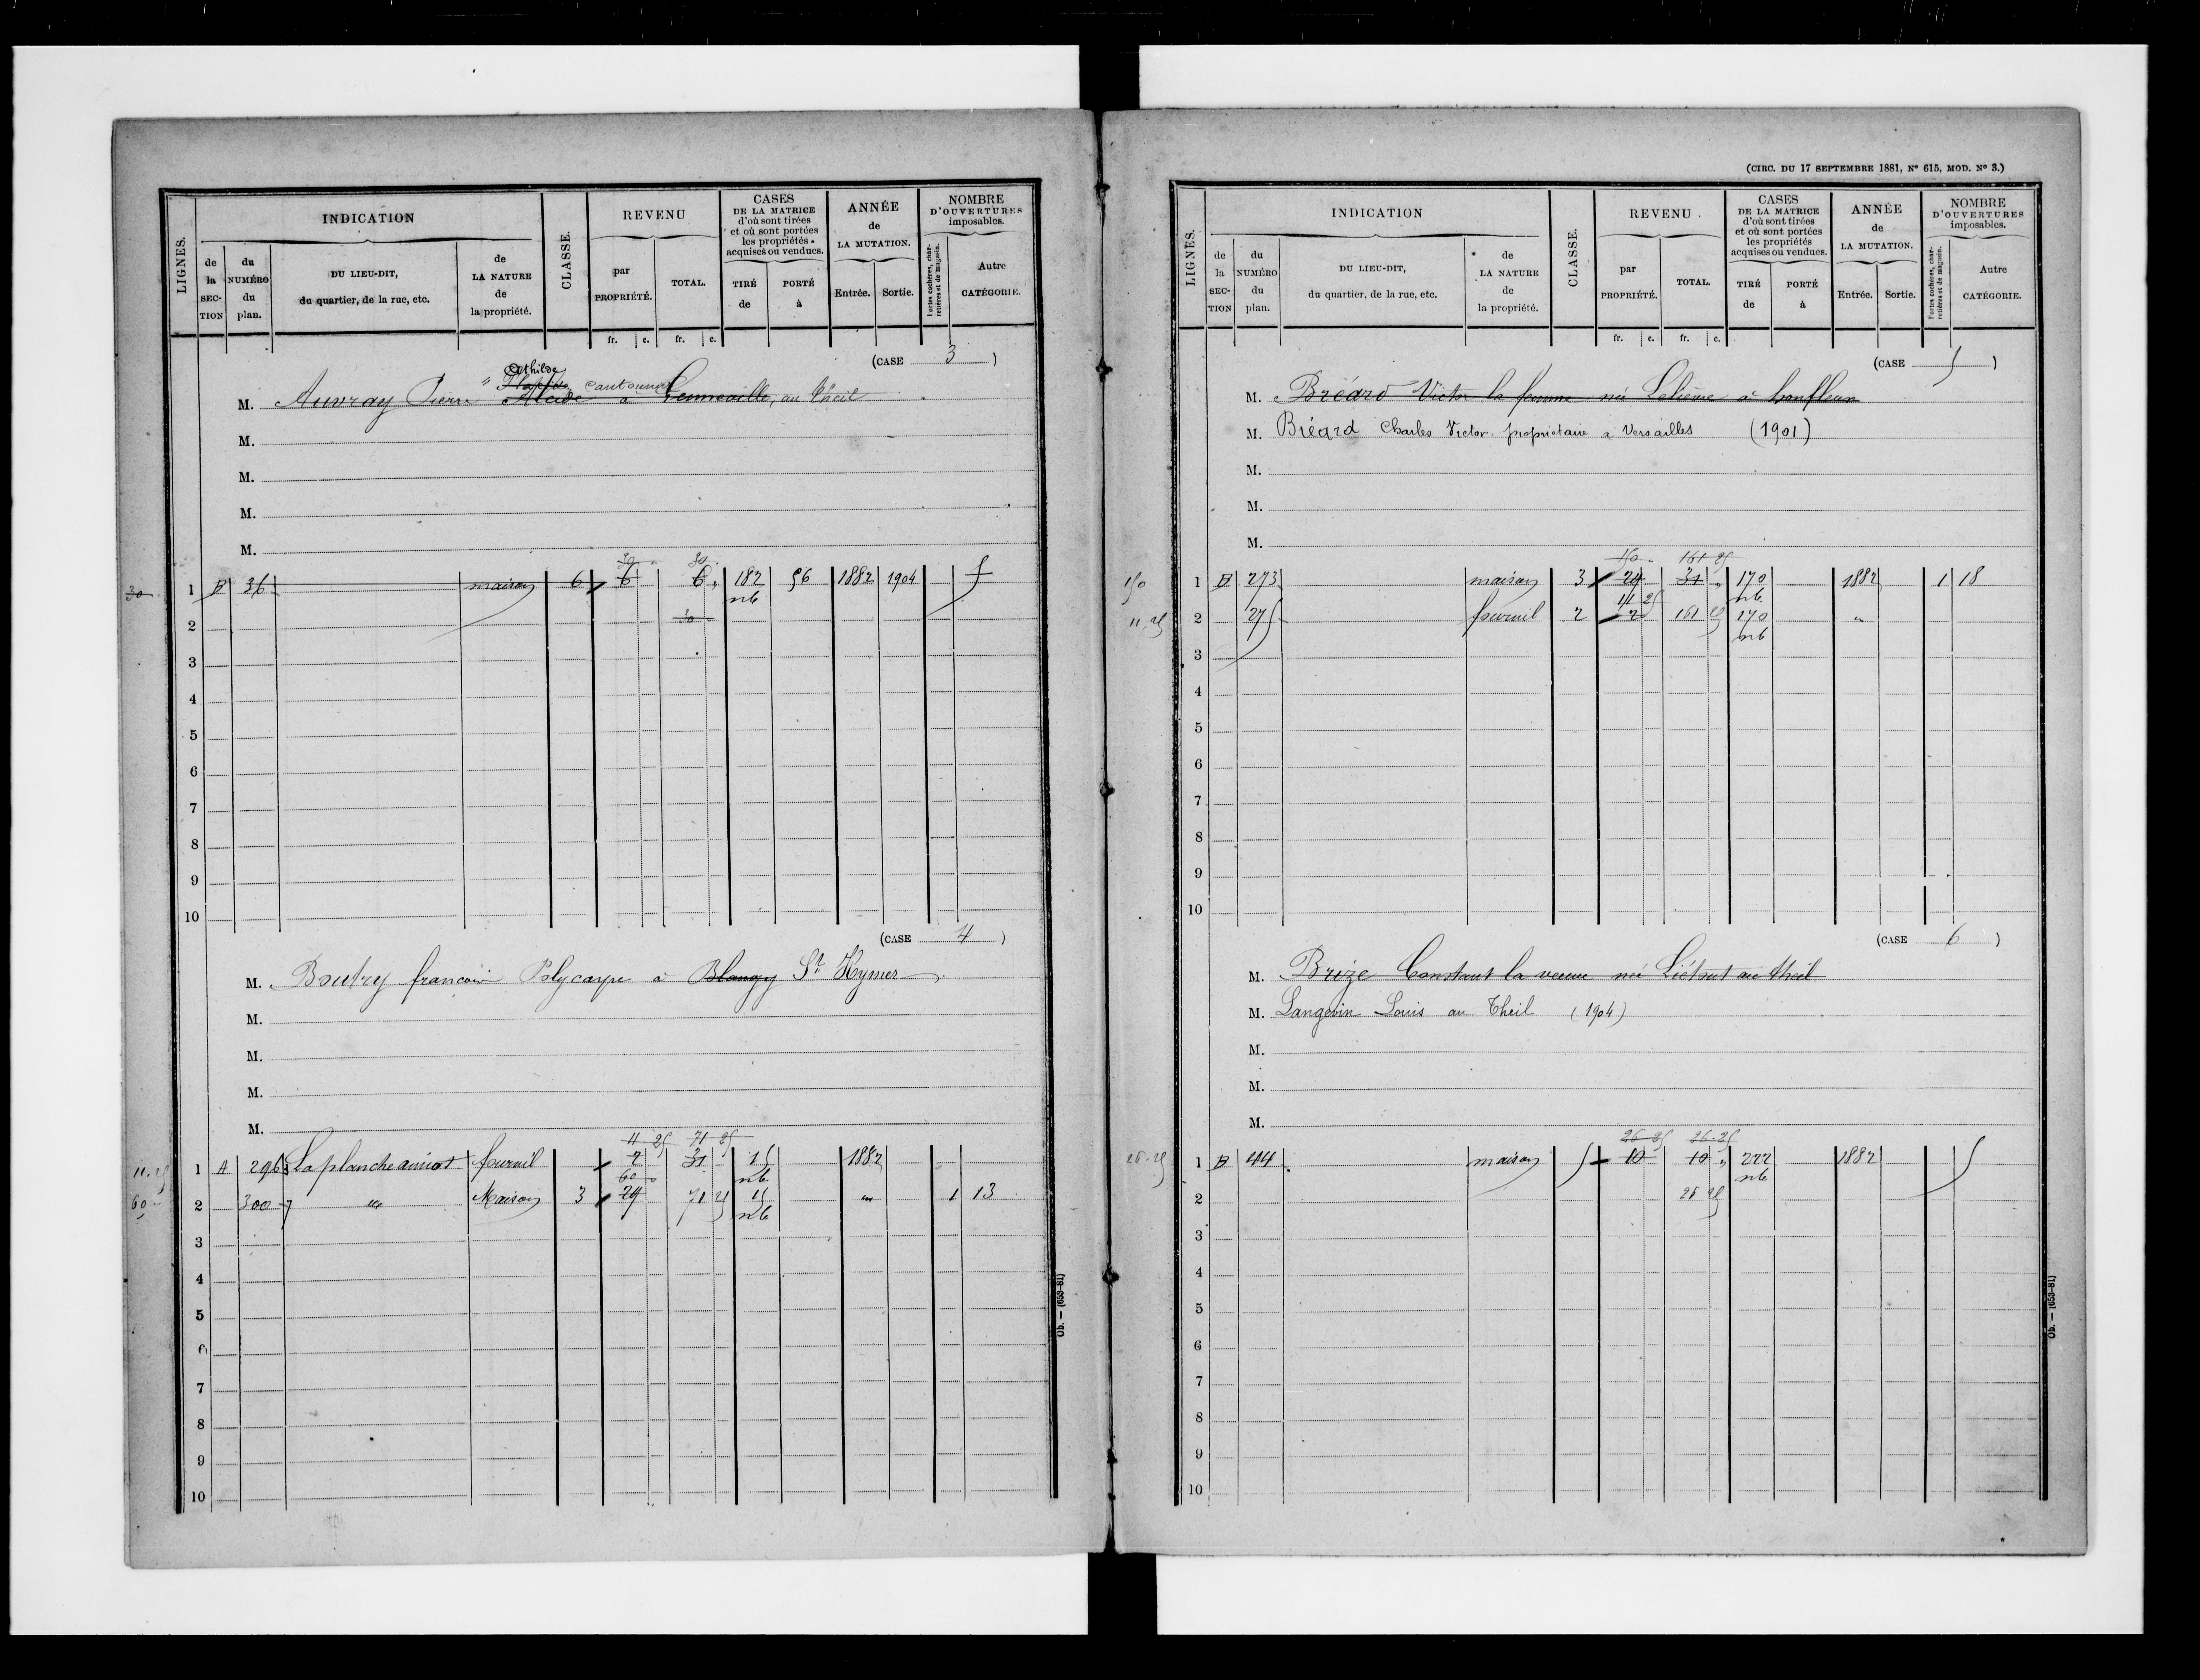 LIGNES.
INDICATION
de la SECTION
du NUMÉRO du plan.
DU LIEU-DIT, du quartier, de la rue, etc.
de LA NATURE de la propriété.
CLASSE.
REVENU
par PROPRIÉTÉ.
TOTAL.
fr. c. fr. c.
CASES DE LA MATRICE d'où sont tirées et où sont portées les propriétés acquises ou vendues.
TIRÉ de
PORTÉ à
ANNÉE de LA MUTATION.
Entrée. Sortie.
NOMBRE D'OUVERTURES imposables.
Portes cochères, charretières et de magasin.
Autre CATÉGORIE.
(CASE 3)
Athilde
M. Auvray Pierre Alcide cantonnier à Genneville, au theil
M.
M.
M.
M.
30 30
30 1 B 36 maison 6 6 6 182 56 1882 1904 5
nb
2 30
3
4
5
6
7
8
9
10
(CASE 4)
M. Boutry francois Polycarpe à Blangy St Hymer
M.
M.
M.
M.
11 25 71 25
11.25 1 A 296 La planche amiot fournil 7 31 15 1882
60 nb
60 2 300 " Maison 3 24 71 25 15 " 1 13
nb
3
4
5
6
7
8
9
10
Ob. — (653-81)
(CIRC. DU 17 SEPTEMBRE 1881, N° 615, MOD. N° 3.)
LIGNES.
INDICATION
de la SECTION
du NUMÉRO du plan.
DU LIEU-DIT, du quartier, de la rue, etc.
de LA NATURE de la propriété.
CLASSE.
REVENU
par PROPRIÉTÉ.
TOTAL.
fr. c. fr. c.
CASES DE LA MATRICE d'où sont tirées et où sont portées les propriétés acquises ou vendues.
TIRÉ de
PORTÉ à
ANNÉE de LA MUTATION.
Entrée. Sortie.
NOMBRE D'OUVERTURES imposables.
Portes cochères, charretières et de magasin.
Autre CATÉGORIE.
(CASE 5)
M. Bréard Victor la femme née Lelièvre à honfleur
M. Bréard Charles Victor propriétaire à Versailles (1901)
M.
M.
M.
150 161 25
150 1 B 273 maison 3 24 31 170 1882 1 18
11 25 nb
11.25 2 275 fournil 2 2 161 25 170 "
nb
3
4
5
6
7
8
9
10
(CASE 6)
M. Brize Constant la veuve née Liétout au theil
M. Langevin Louis au Theil (1904)
M.
M.
M.
26 25 26.25
26.25 1 B 44 maison 5 10 10 222 1882 5
nb
2 26 25
3
4
5
6
7
8
9
10
Ob. — (653-81)